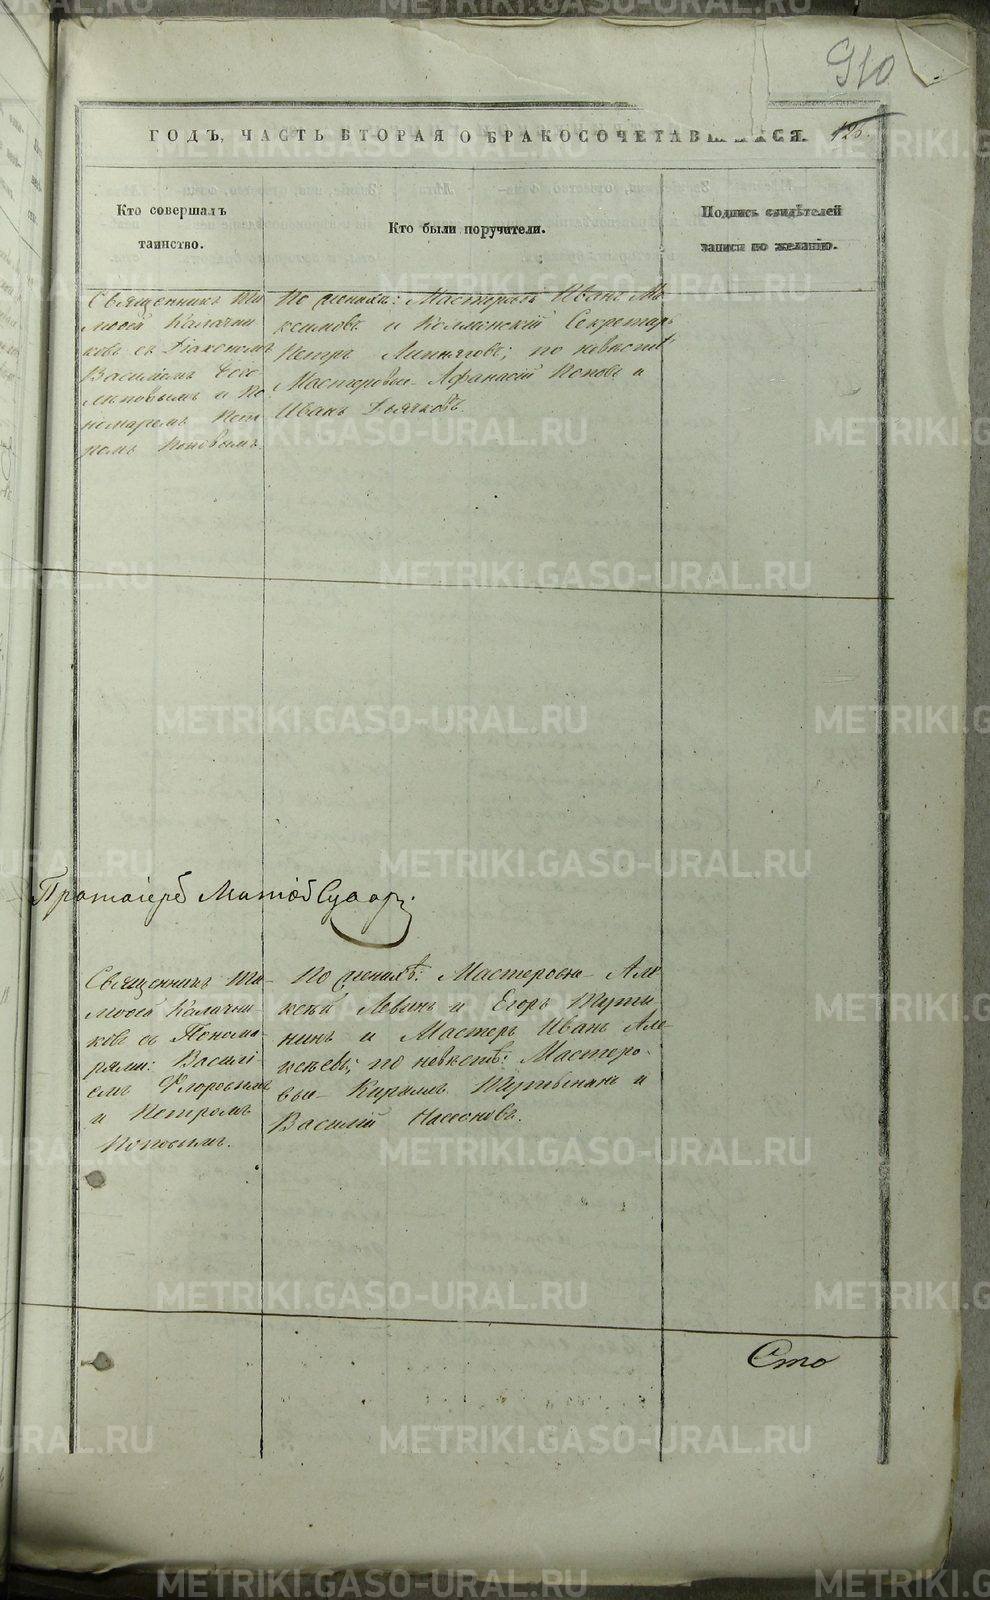 910
ГОДЪ, ЧАСТЬ ВТОРАЯ О БРАКОСОЧЕТАВШИХСЯ.
125.
Кто совершалъ
таинство.
Кто были поручители.
Подпись свидѣтелей
записи по желанію.
Священникъ Ти-
моѳей Калачни-
ковъ съ Діакономъ
Василіемъ
и По-
номаремъ Пет-
ромъ Поповымъ.
По женихѣ: Мастеровый Иванъ Ма-
ксимовъ и Коллежскій Секретарь
Петръ по невѣстѣ
Мастеровые Афанасій Поповъ и
Иванъ Дьячковъ.
Протоіерей
Священникъ Ти-
моѳей Калачни-
ковъ съ Понома-
рями: Василі-
емъ Флоровымъ
и Петромъ
Поповымъ.
По женихѣ: Мастеровые Але-
ксѣй Левинъ и Егоръ
и Мастеръ Иванъ Але-
ксѣевъ; по невѣстѣ: Мастеро-
вые Кирилъ и
Василій Насоновъ.
Сто
METRIKI.GASO-URAL.RU